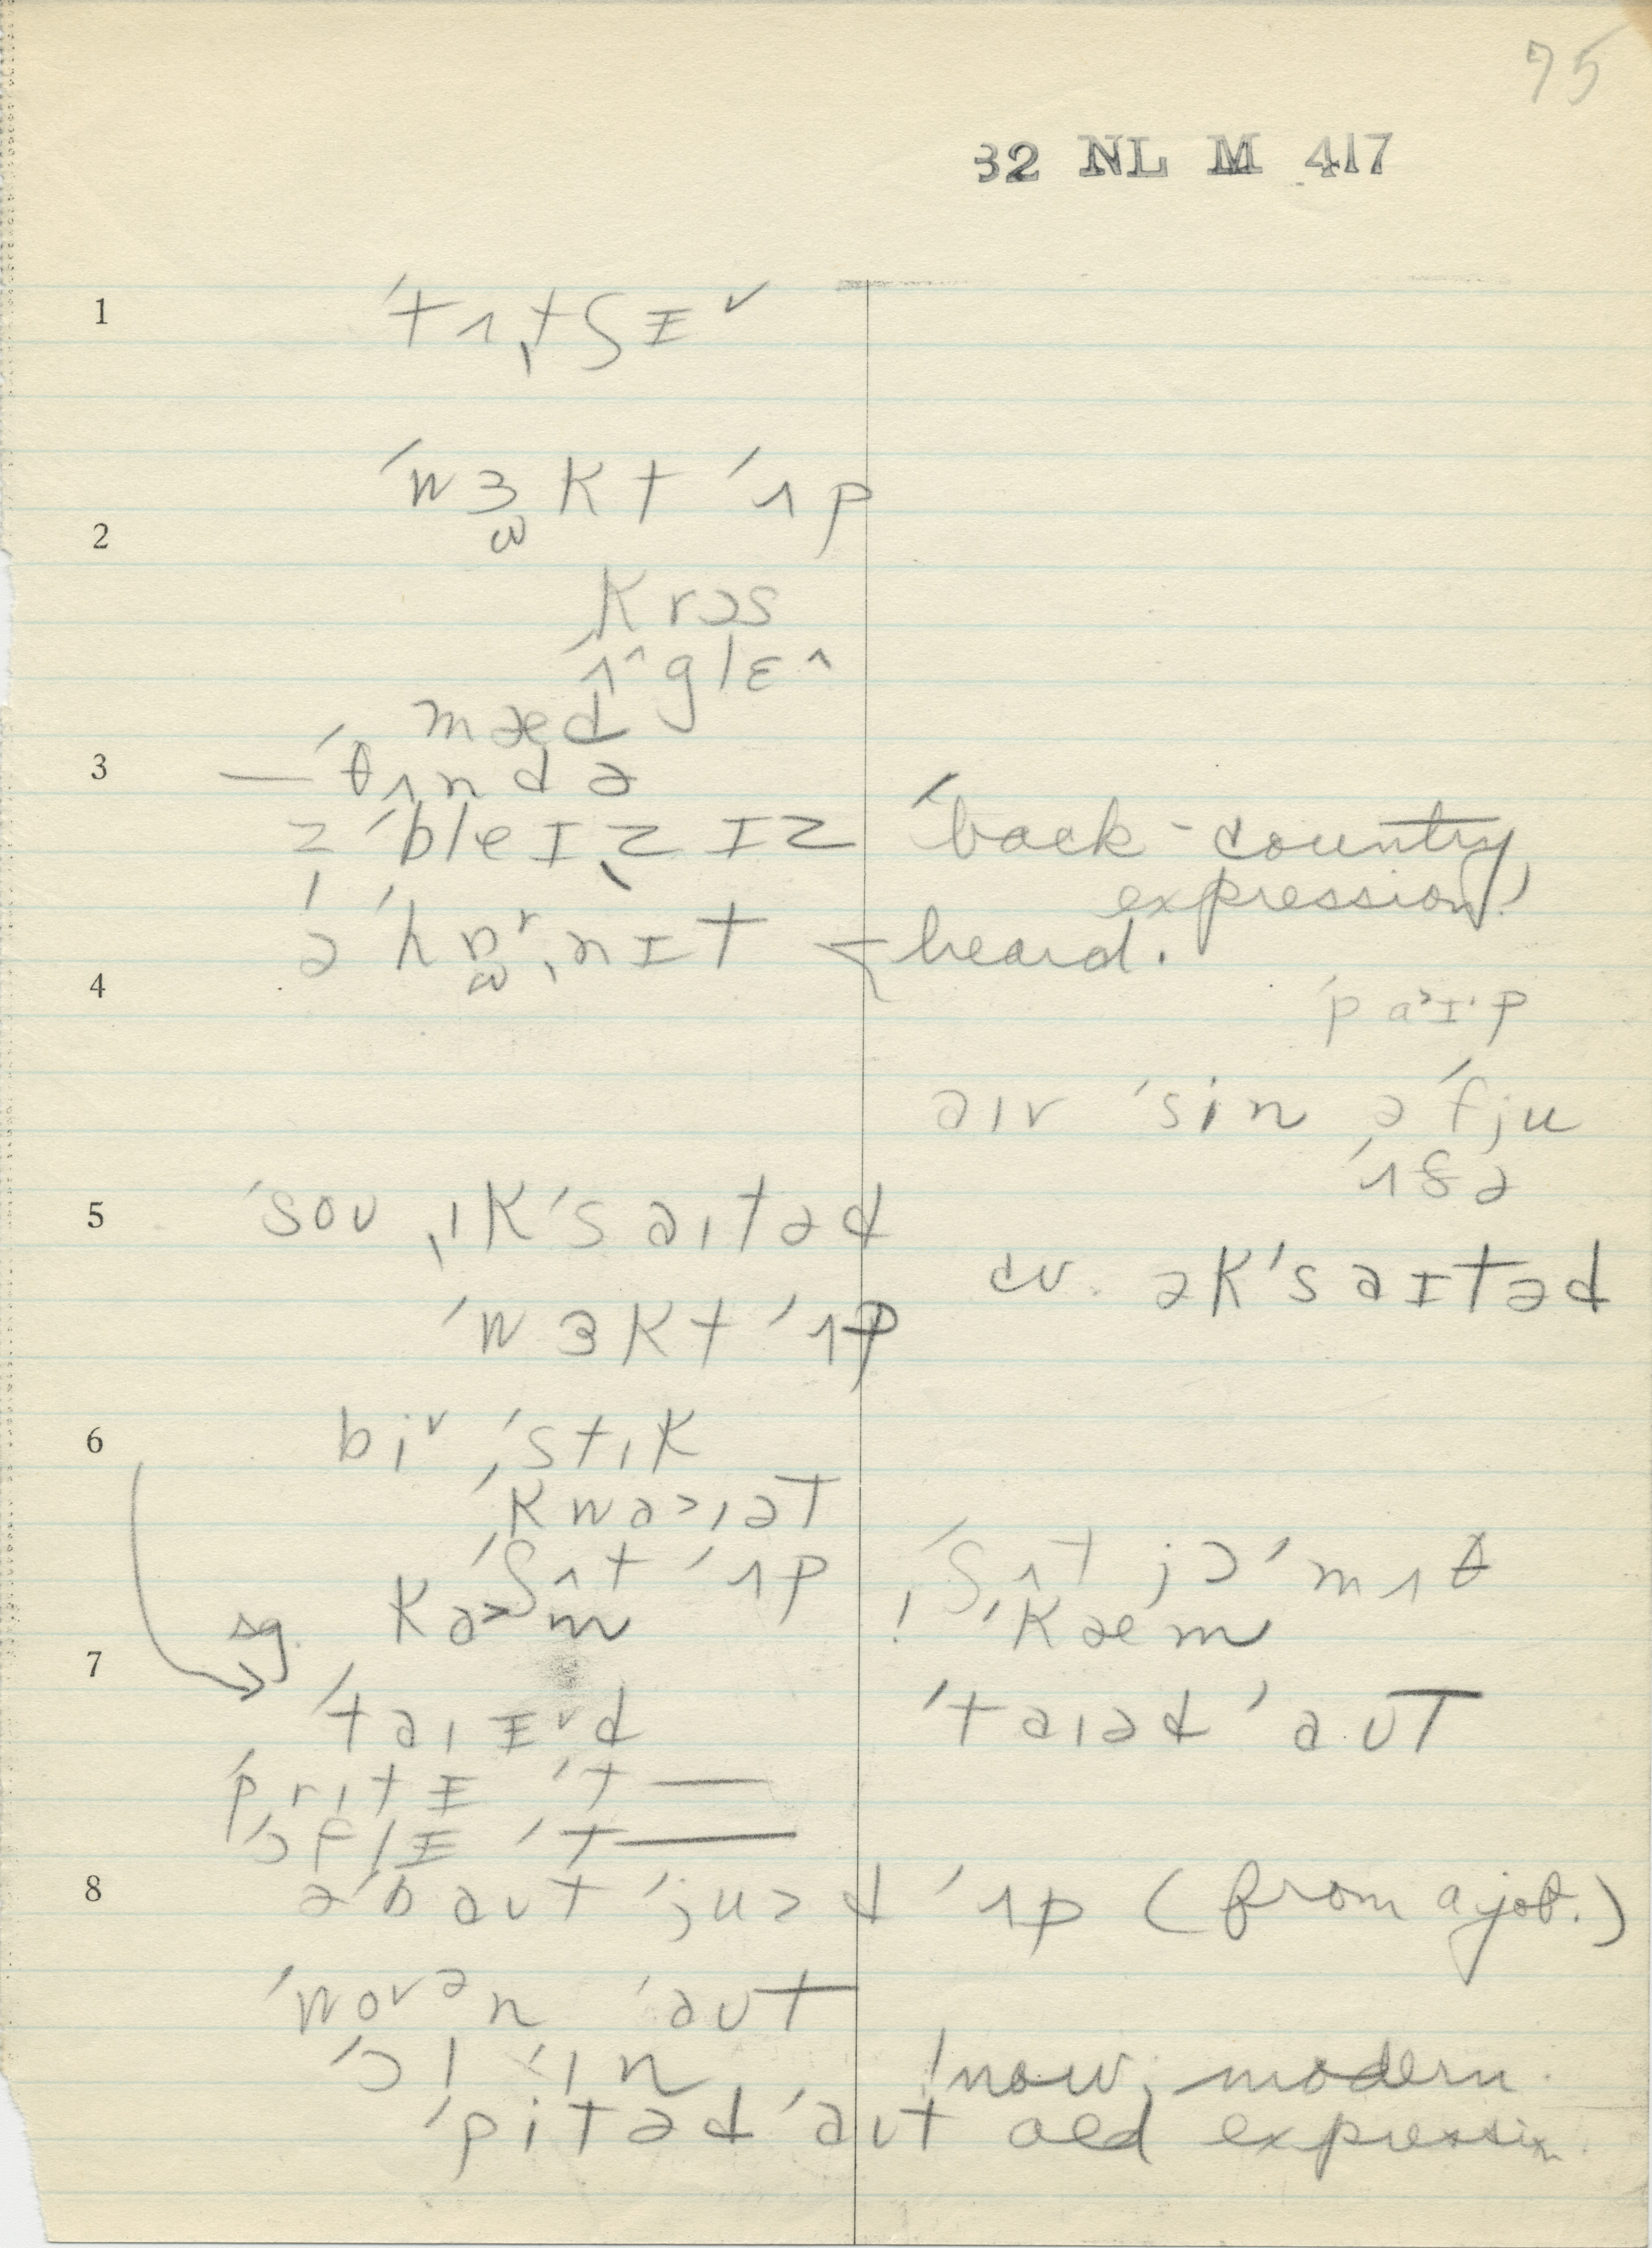 75
32 NL M 417
1 ˈtʌˌtʃɪ˅
ˈwɜkt ˈʌp
2
krɔs
ˈʌ^glɛ^
mæd
3 — ˈθʌndə
z ˈbleɪˌzɪz ˈback-country
expression!
ə ˈhɒʳˌnɪt heard.
4
ˈpa˃ɪˑp
aɪv ˈsin ə ˈfju
ˈʌðə
5 ˈsoʊ ˌɪkˈsaɪtəd
cv. əkˈsaɪtəd
ˈwɜkt ˈʌp
6 bi˅ ˌˈstɪk
ˈkwa˃ɪət
ˈʃʌt ˈʌp ˈʃʌt jɔ ˈmʌθ
sg. ka˃m ! ˈkæm
7
ˈtaɪɪ˅d ˈtaɪəd ˈaʊt
ˈprɪtɪ ˈt—
ˈɔflɪ ˈt—
8 əˈbaʊt ˈjuzd ˈʌp (from a job.)
ˈwov ə n ˈaʊt
ˈɔl ˈɪn !now, modern.
ˈpitəd ˈaʊt old expression